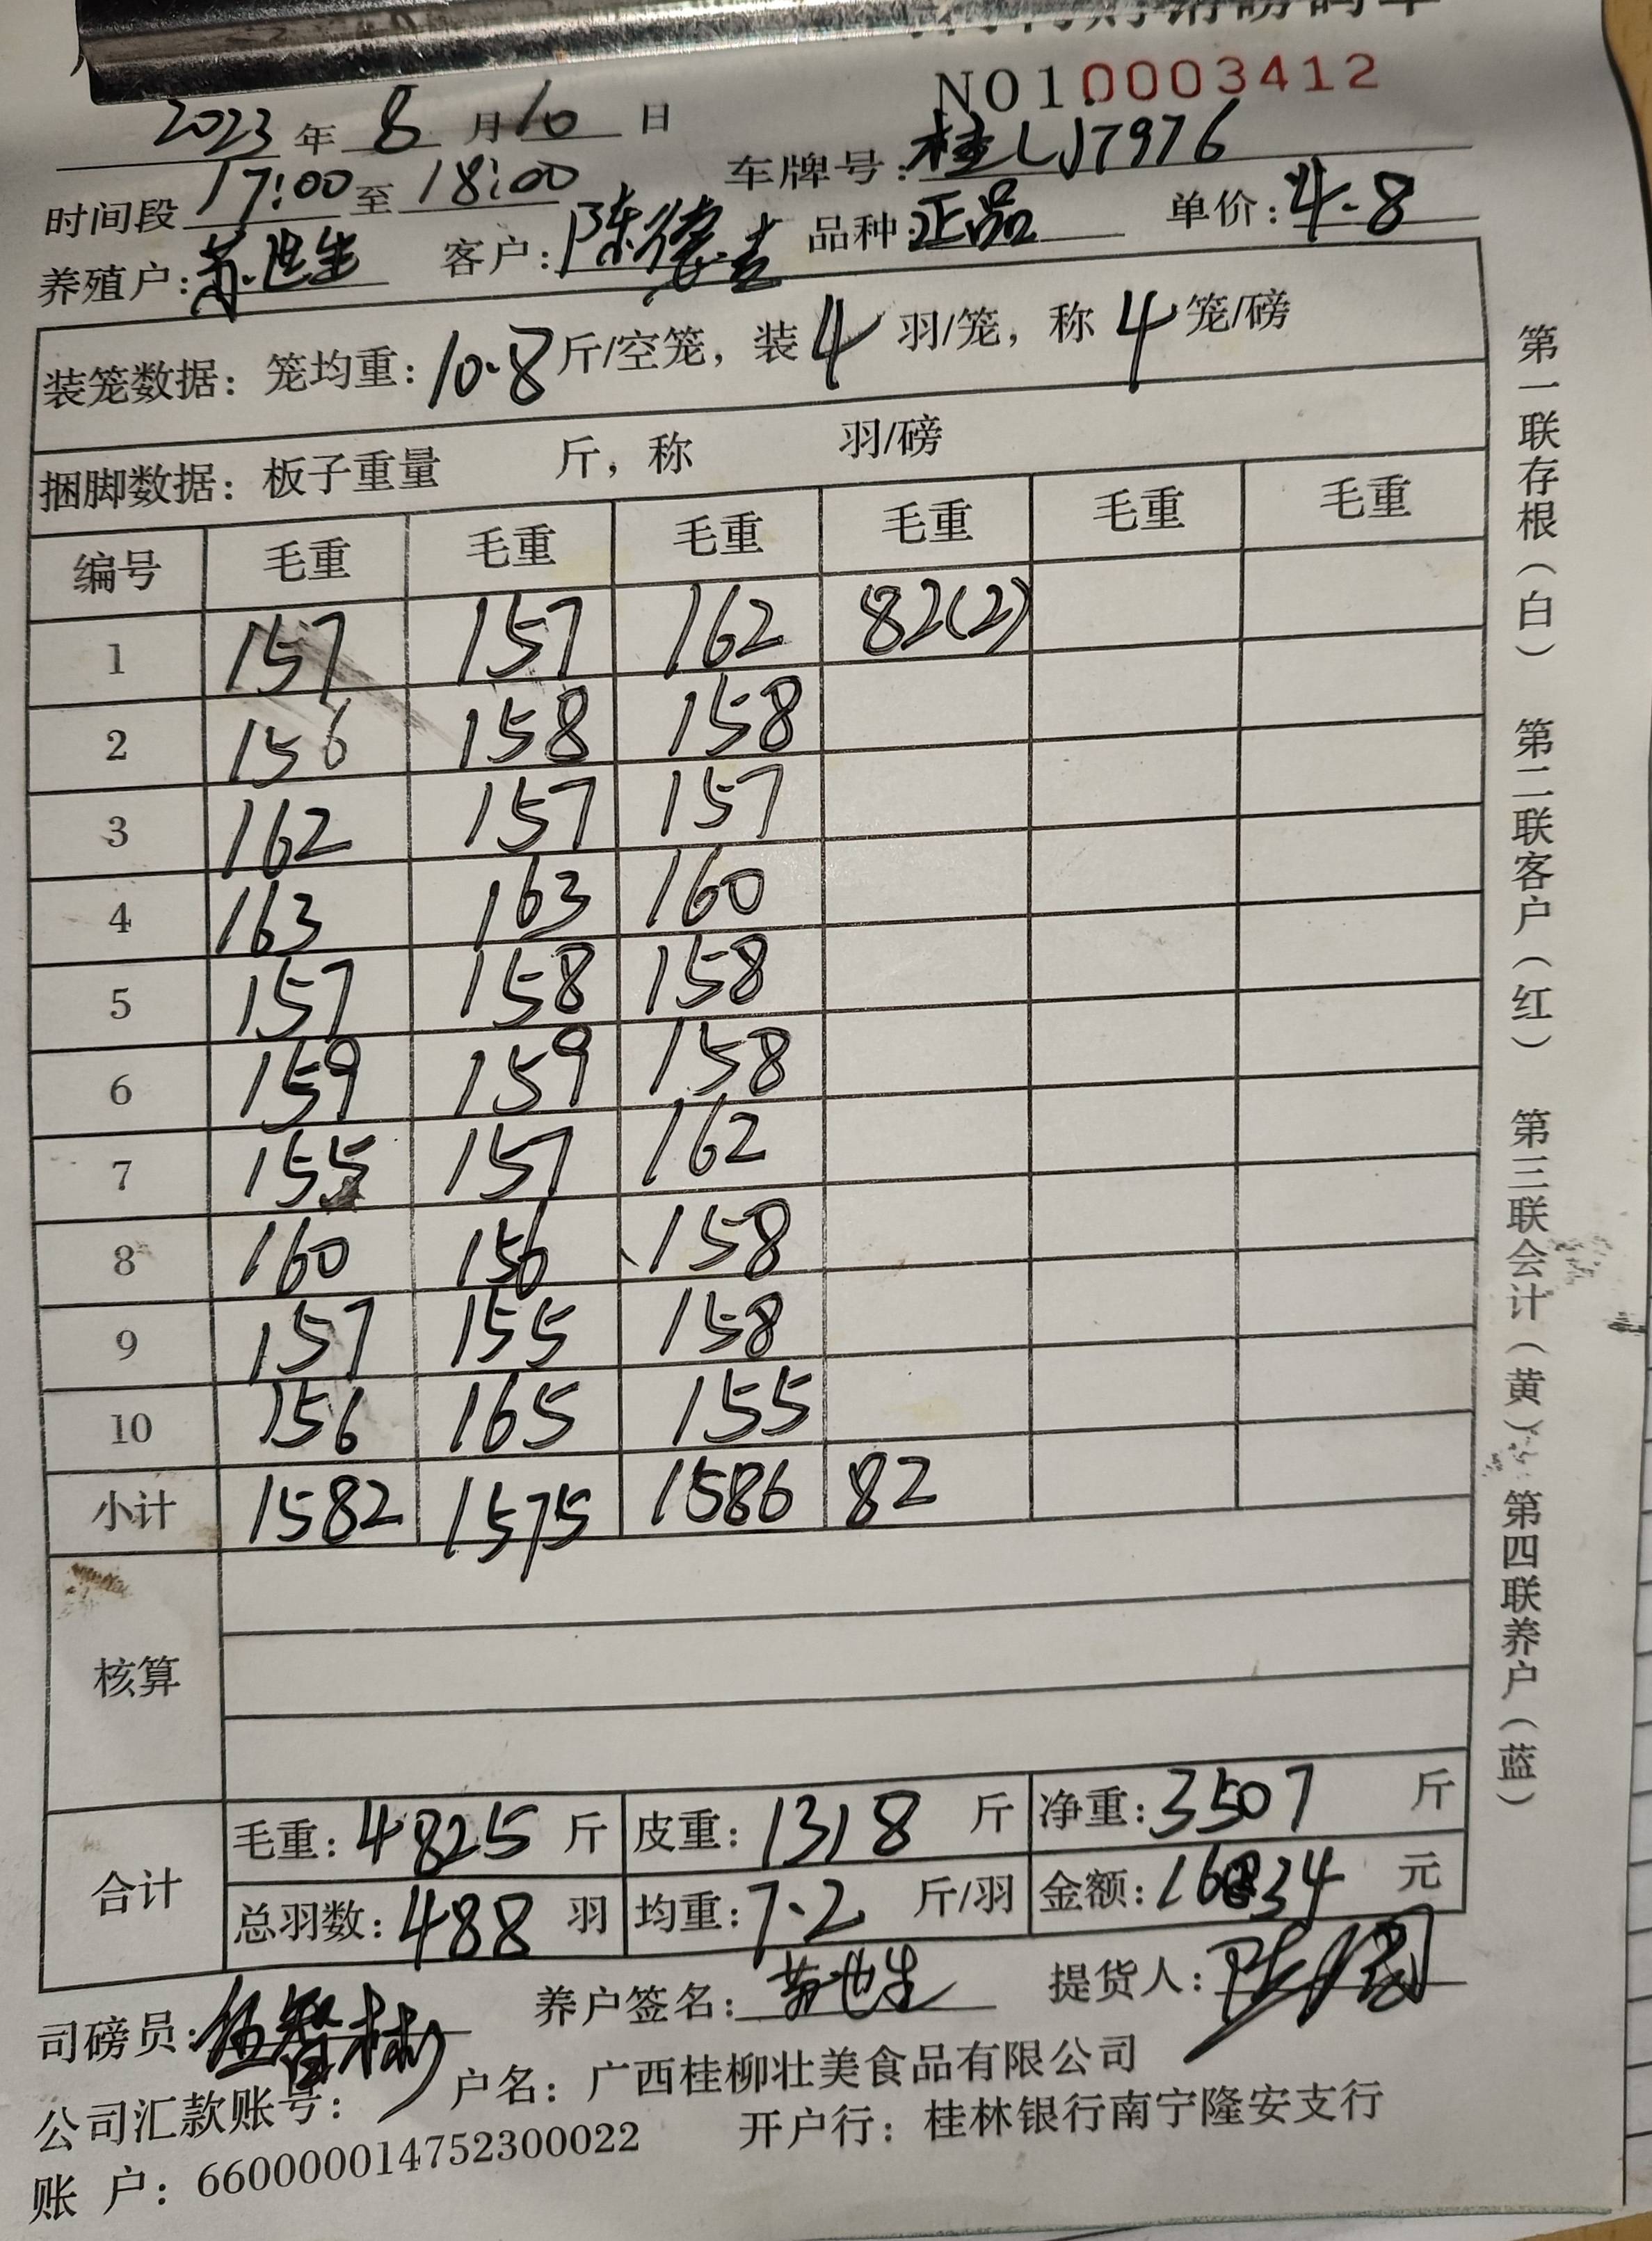 NO1.0003412
2023年8月10日
车牌号:桂LJ7976
时间段17:00至18:00
品种:正品 单价:4.8
养殖户:苏世生 客户:陈德志
装笼数据:笼均重:10.8斤/空笼,装4羽/笼,称4笼/磅
捆脚数据:板子重量 斤,称 羽/磅
编号 毛重 毛重 毛重 毛重 毛重 毛重
1 157 157 162 82(2)
2 156 158 158
3 162 157 157
4 163 163 160
5 157 158 158
6 159 159 158
7 155 157 162
8 160 156 158
9 157 155 158
10 156 165 155
小计 1582 1575 1586 82
核算
合计 毛重:4825斤 皮重:1318斤 净重:3507斤
总羽数:488羽 均重:7.2斤/羽 金额:16834元
司磅员:伍智彬 养户签名:苏世生 提货人:
公司汇款账号: 户名:广西桂柳壮美食品有限公司
账 户:660000014752300022 开户行:桂林银行南宁隆安支行
第一联存根(白) 第二联客户(红) 第三联会计(黄) 第四联养户(蓝)